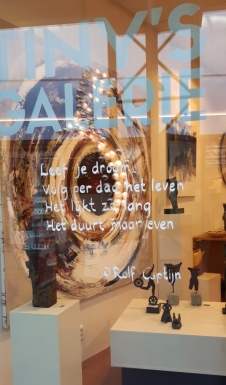 TINY'S
GALERIE
Leef je droom
Volg per dag het leven
Het lijkt zo lang
Het duurt maar even
© Rolf